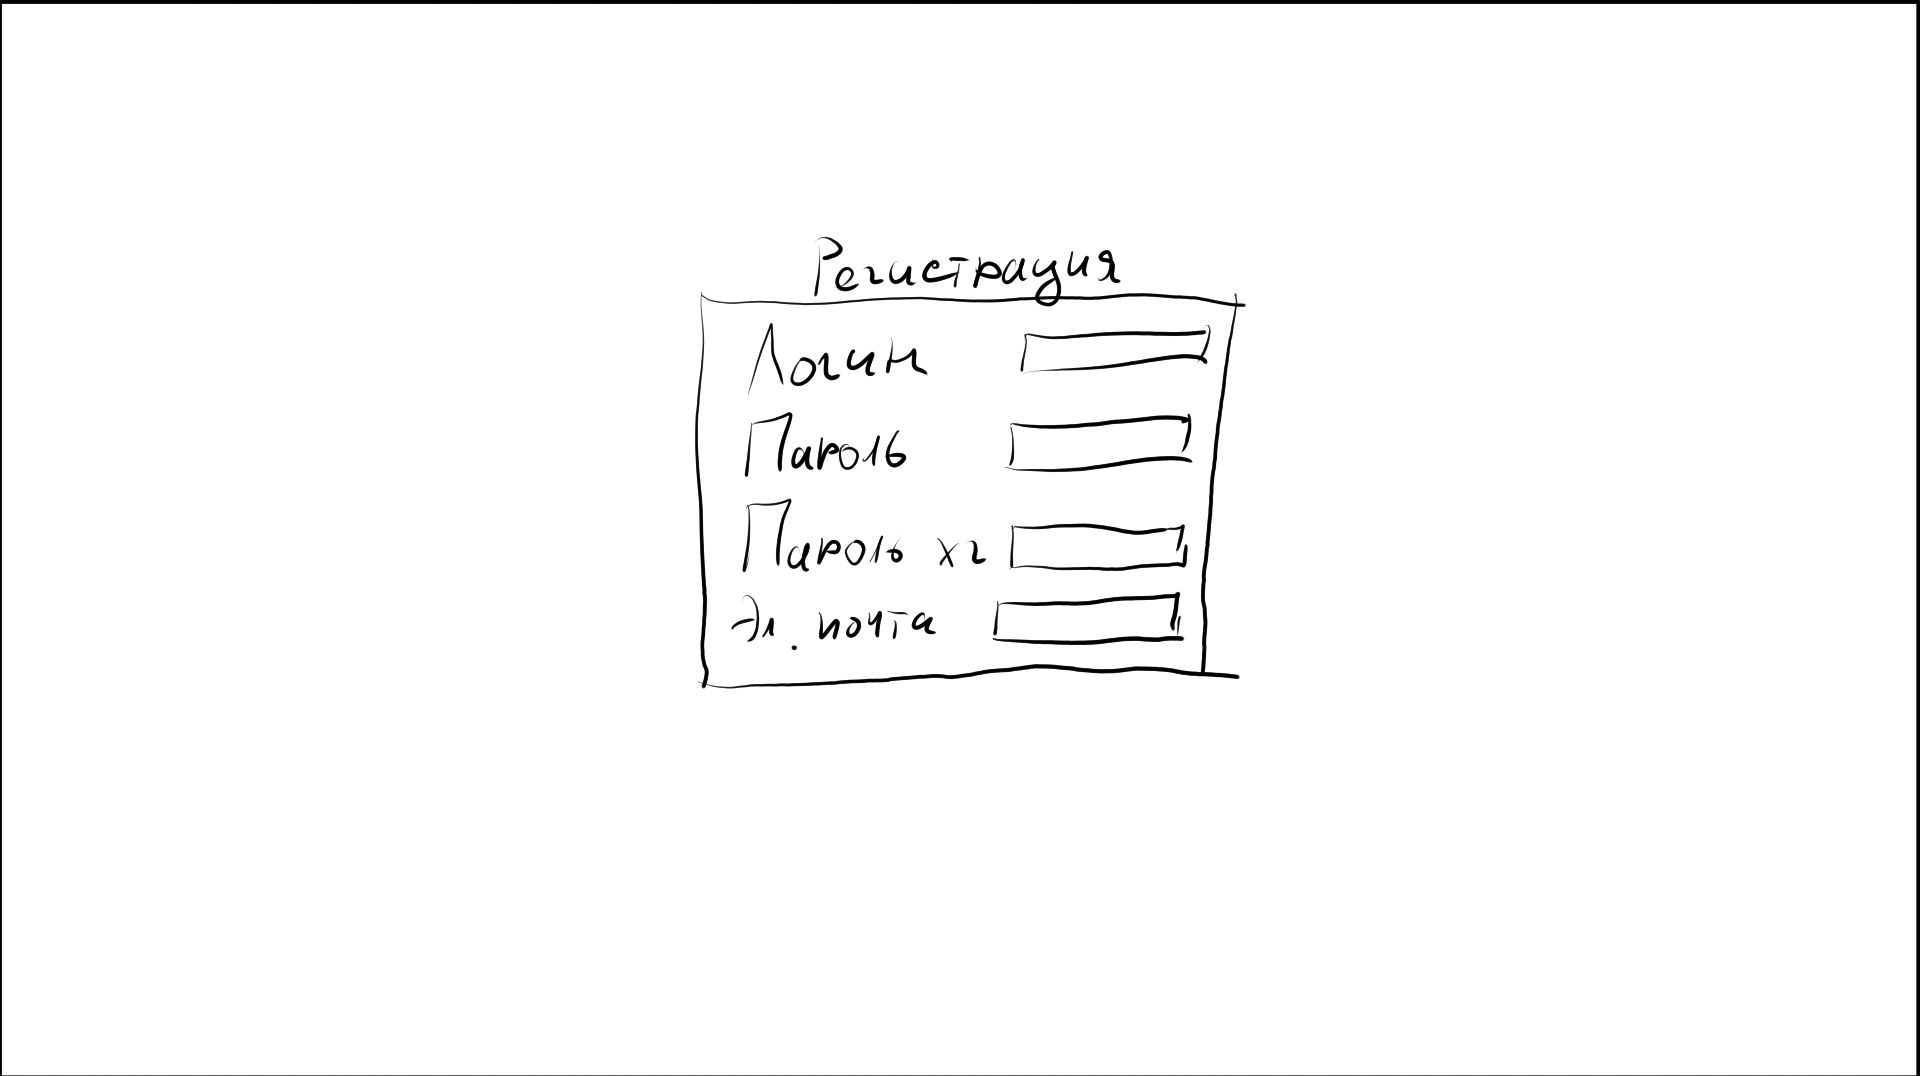 Регистрация
Логин
Пароль
Пароль x2
Эл. почта